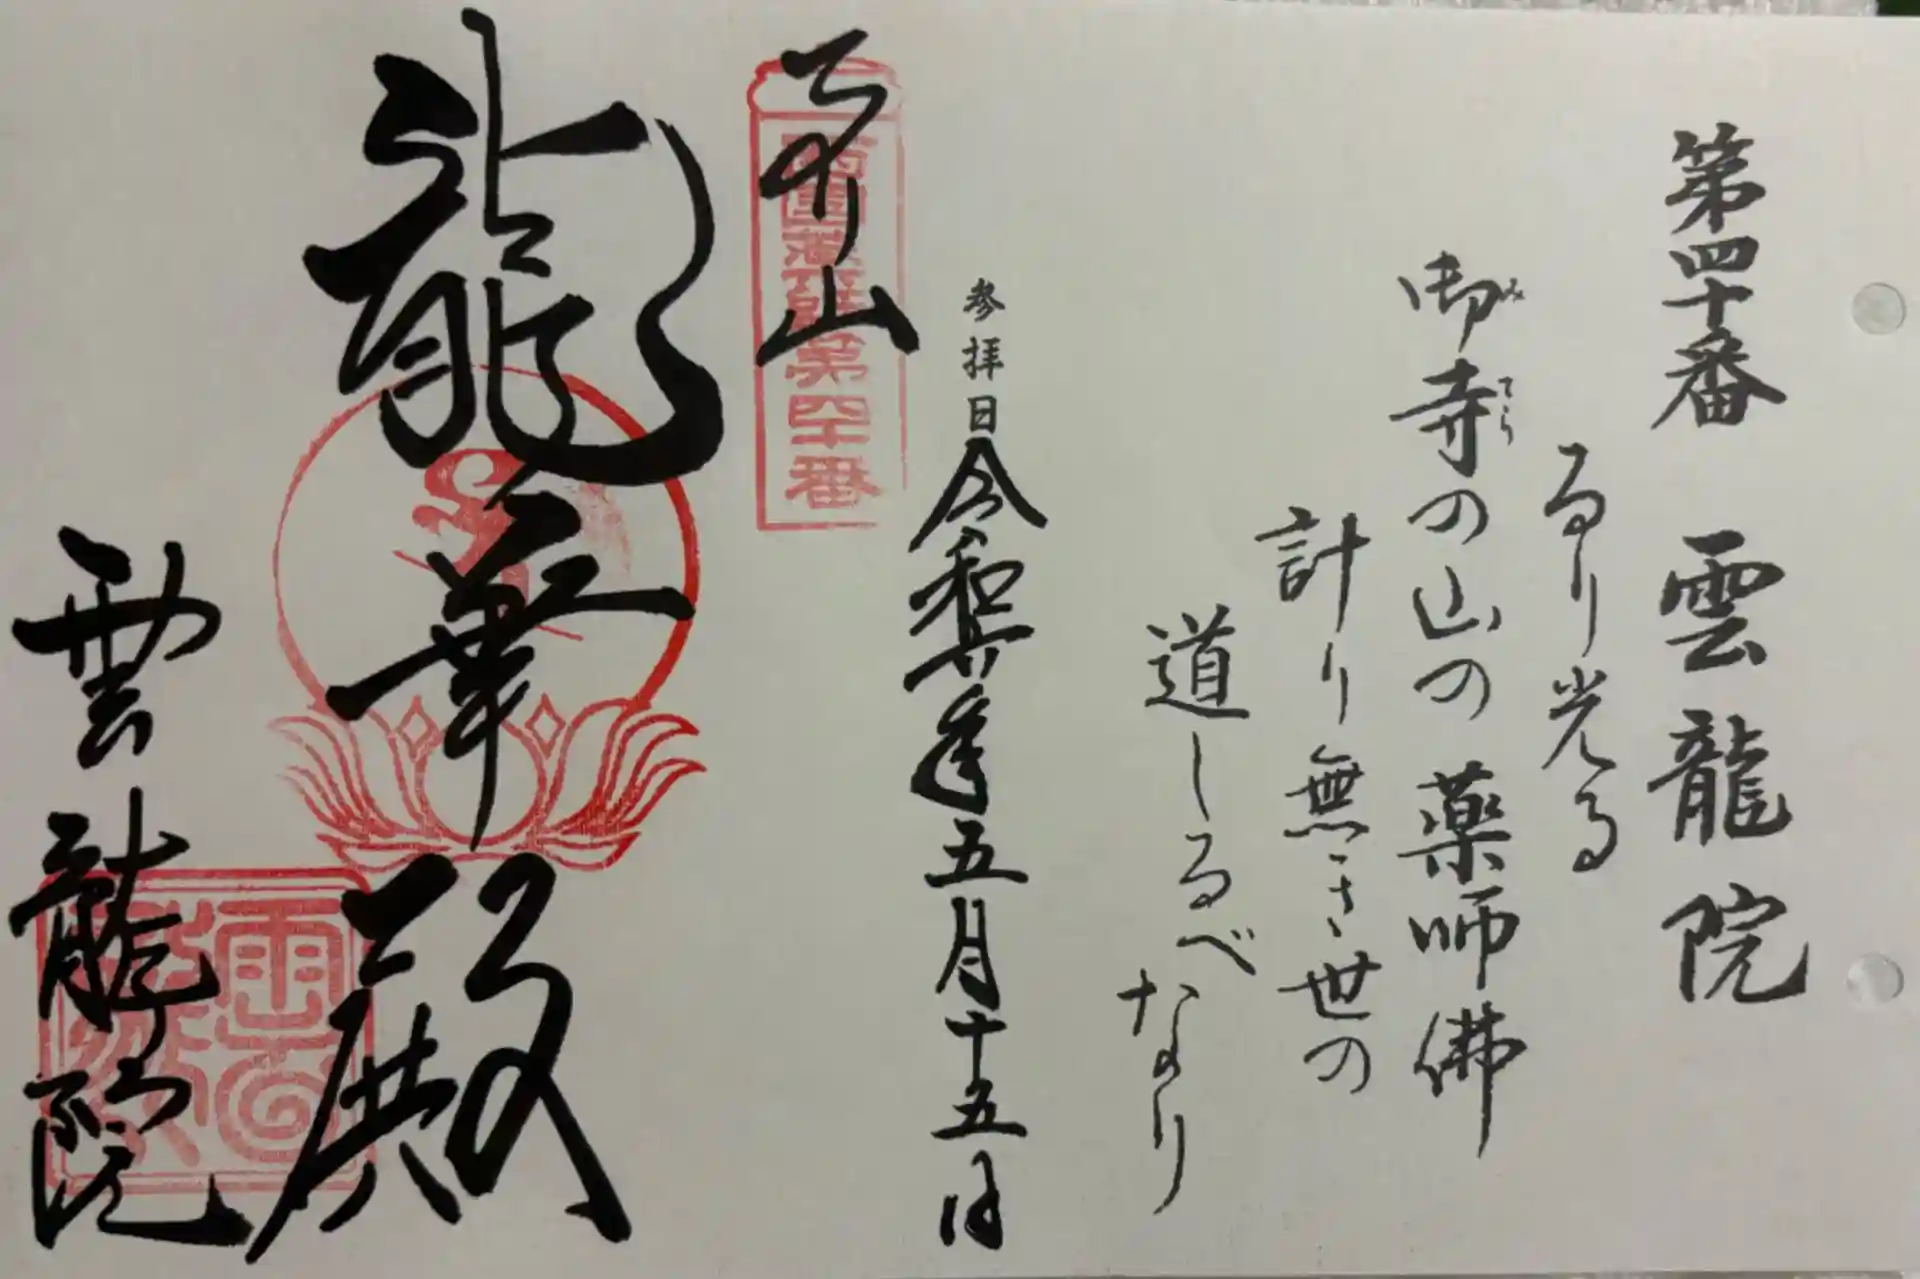 第四十番 雲龍院
るり光る
御寺の山の薬師佛
みてら
計り無き世の
道しるべなり
参拝日 令和六年五月十五日
るり山
西國薬師第四十番
龍華殿
雲龍院